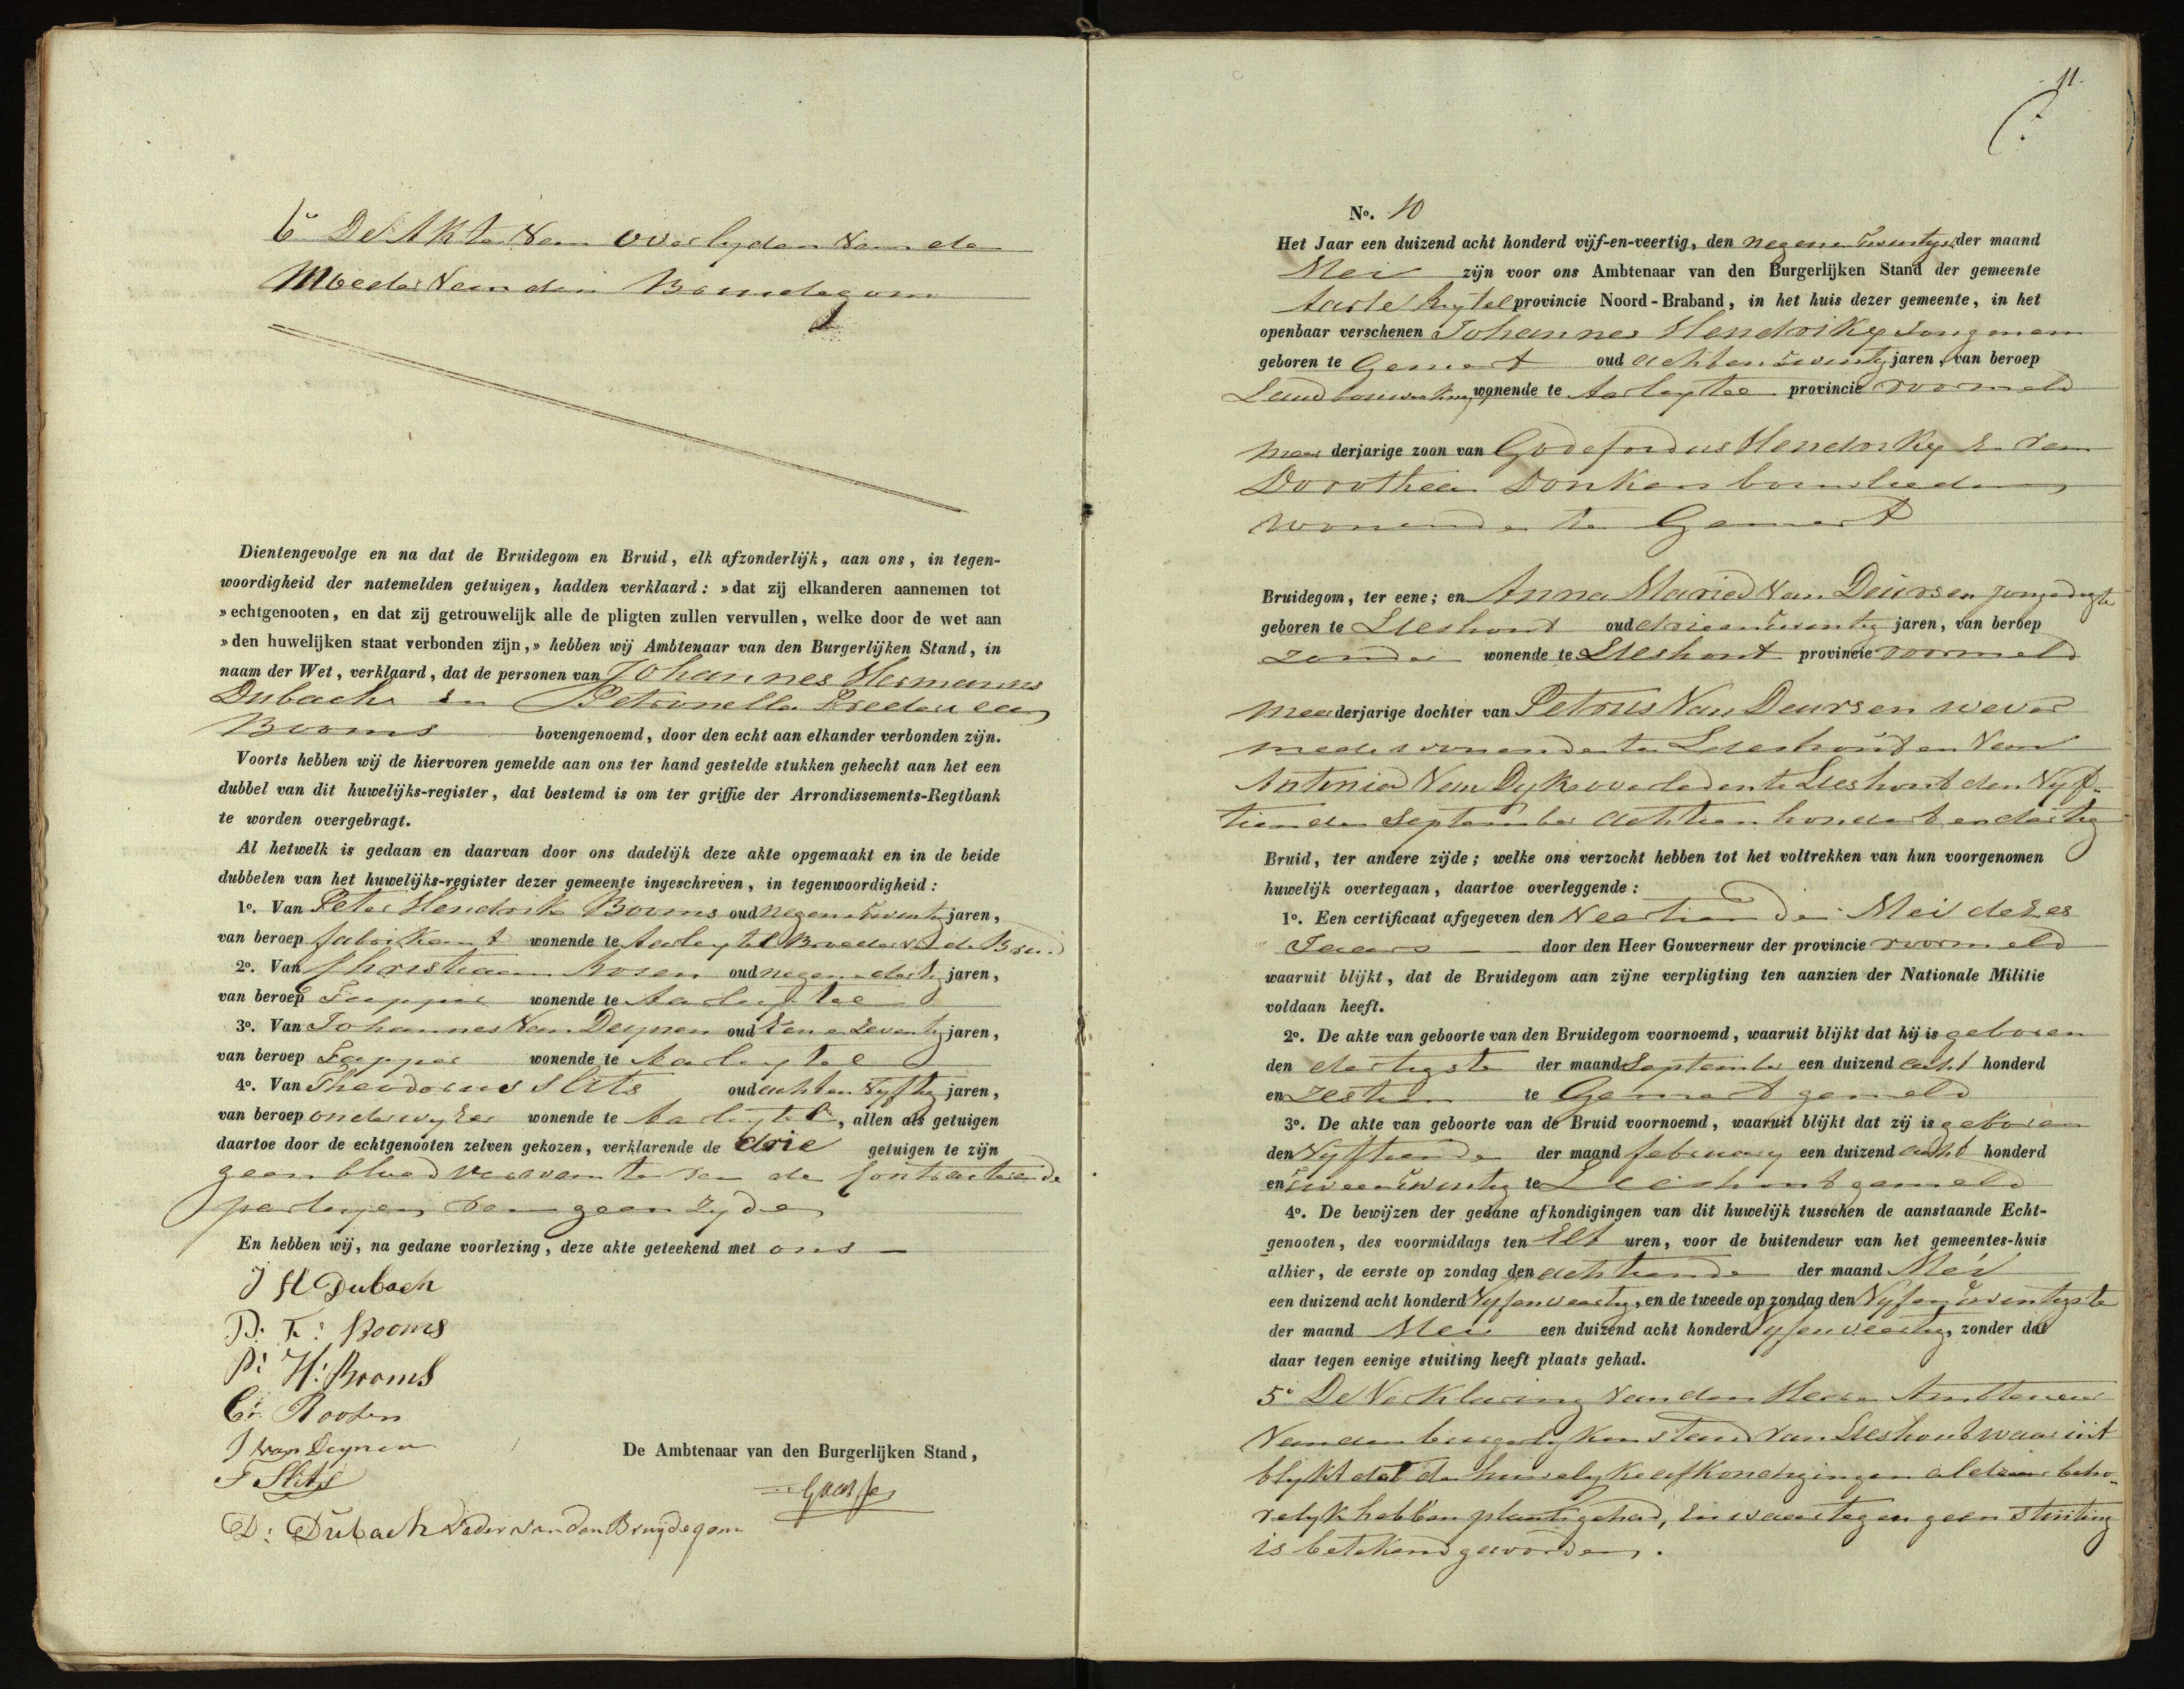 6° De Akte Van overlyden Van de
Moeder Van den Bruidegom
Dientengevolge en na dat de Bruidegom en Bruid, elk afzonderlijk, aan ons, in tegen-
woordigheid der natemelden getuigen, hadden verklaard: »dat zij elkanderen aannemen tot
»echtgenooten, en dat zij getrouwelijk alle de pligten zullen vervullen, welke door de wet aan
»den huwelijken staat verbonden zijn,» hebben wij Ambtenaar van den Burgerlijken Stand, in
naam der Wet, verklaard, dat de personen van Johannes Hermanus
Dubach en Petronella
Booms bovengenoemd, door den echt aan elkander verbonden zijn.
Voorts hebben wij de hiervoren gemelde aan ons ter hand gestelde stukken gehecht aan het een
dubbel van dit huwelijks-register, dat bestemd is om ter griffie der Arrondissements-Regtbank
te worden overgebragt.
Al hetwelk is gedaan en daarvan door ons dadelijk deze akte opgemaakt en in de beide
dubbelen van het huwelijks-register dezer gemeente ingeschreven, in tegenwoordigheid:
1°. Van Peter Hendrik Booms oud negenentwintig jaren,
van beroep fabrikant wonende te Aarleytel Broeder v d Bruid
2°. Van Christiaan oud negenendertig jaren,
van beroep Tapper wonende te Aarleytel
3°. Van Johannes Van Deynen oud een en zeventig jaren,
van beroep Tapper wonende te Aarleytel
4°. Van Theodorus Slits oud acht en Vyftig jaren,
van beroep onderwyzer wonende te Aarleytel, allen als getuigen
daartoe door de echtgenooten zelven gekozen, verklarende de drie getuigen te zijn
geen bloedverwanten van de Contracteerende
partyen van geen zyde
En hebben wij, na gedane voorlezing, deze akte geteekend met ons
J H Dubach
P: F: Booms
P: H: Booms
C: Roosen
J van Deynen
F Slits
De Ambtenaar van den Burgerlijken Stand,
D: Dubach Vader van den Bruijdegom
11.
N°. 10
Het Jaar een duizend acht honderd vijf-en-veertig, den negenentwintigste der maand
Mei zijn voor ons Ambtenaar van den Burgerlijken Stand der gemeente
Aarlerixtel provincie Noord-Braband, in het huis dezer gemeente, in het
openbaar verschenen Johannes Hendrikx Jongman
geboren te Gemert oud achtentwintig jaren, van beroep
Landbouwer wonende te Aarleytel provincie voormeld
meerderjarige zoon van Godefridus Hendrikx en van
Dorothea Donkers bouwlieden
wonende te Gemert
Bruidegom, ter eene; en Anna Maria Van Deursen jongedogter
geboren te Lieshout oud drieentwintig jaren, van beroep
zonder wonende te Lieshout provincie voormeld
meerderjarige dochter van Petrus Van Deursen wever
mede wonende te Lieshout en Van
Antonia Van Dyk overleden te Lieshout den Vyf-
tienden September achttien hondert en dertig
Bruid, ter andere zijde; welke ons verzocht hebben tot het voltrekken van hun voorgenomen
huwelijk overtegaan, daartoe overleggende:
1°. Een certificaat afgegeven den Veertienden Mei dezes
Jaars door den Heer Gouverneur der provincie voormeld
waaruit blijkt, dat de Bruidegom aan zijne verpligting ten aanzien der Nationale Militie
voldaan heeft.
2°. De akte van geboorte van den Bruidegom voornoemd, waaruit blijkt dat hij is geboren
den dertigste der maand September een duizend acht honderd
en zestien te Gemert gemeld
3°. De akte van geboorte van de Bruid voornoemd, waaruit blijkt dat zij is geboren
den Vyftiende der maand february een duizend acht honderd
en tweentwintig te Lieshout gemeld
4°. De bewijzen der gedane afkondigingen van dit huwelijk tusschen de aanstaande Echt-
genooten, des voormiddags ten Elf uren, voor de buitendeur van het gemeentes-huis
alhier, de eerste op zondag den achttiende der maand Mei
een duizend acht honderd Vyfenveertig, en de tweede op zondag den Vyfentwintigste
der maand Mei een duizend acht honderd Vyfenveertig, zonder dat
daar tegen eenige stuiting heeft plaats gehad.
5° De Verklaring van den Heer Ambtenaar
Van den burgerlyken stand van Lieshout waar uit
blykt dat de huwelyke afkondigingen aldaar beho-
relyk hebben plaats gehad, en waar tegen geen stuiting
is betekend geworden.